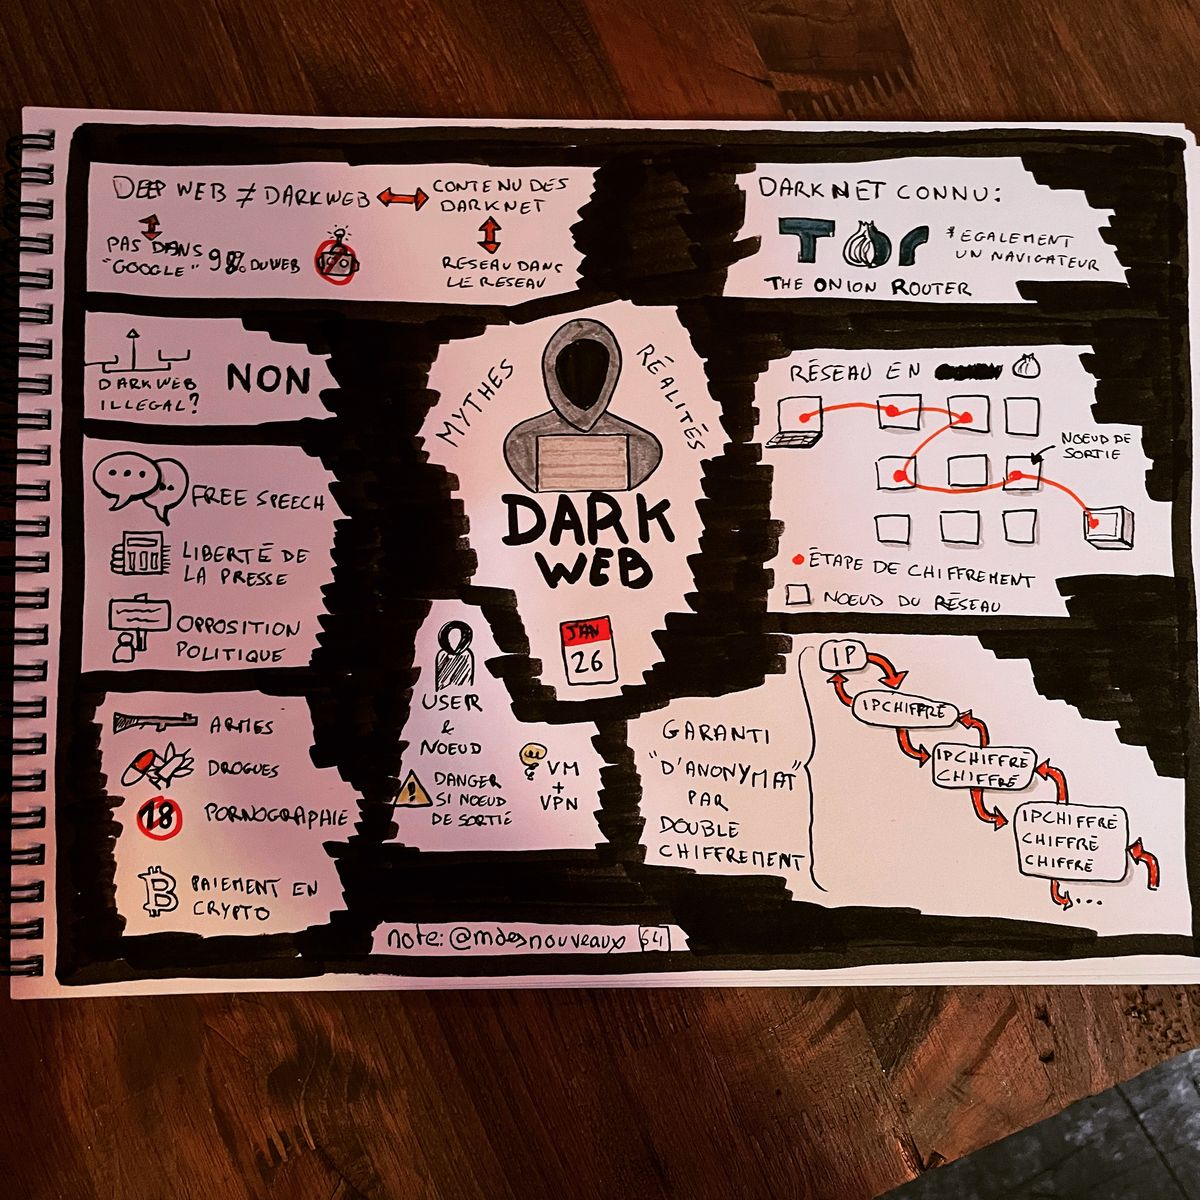 DEEP WEB ≠ DARKWEB
CONTENU DES
DARKNET
PAS DANS
"GOOGLE"
98% DU WEB
RESEAU DANS
LE RESEAU
DARKNET CONNU:
TOr
*EGALEMENT
UN NAVIGATEUR
THE ONION ROUTER
DARKWEB
ILLEGAL?
NON
MYTHES
RÉALITÉS
DARK
WEB
JAN
26
RÉSEAU EN
NOEUD DE
SORTIE
ÉTAPE DE CHIFFREMENT
NOEUD DU RÉSEAU
FREE SPEECH
LIBERTÉ DE
LA PRESSE
OPPOSITION
POLITIQUE
ARMES
DROGUES
18
PORNOGRAPHIE
PAIEMENT EN
CRYPTO
USER
&
NOEUD
DANGER
SI NOEUD
DE SORTIE
VM
+
VPN
GARANTI
"D'ANONYMAT"
PAR
DOUBLE
CHIFFREMENT
IP
IPCHIFFRÉ
IPCHIFFRÉ
CHIFFRÉ
IPCHIFFRÉ
CHIFFRÉ
CHIFFRÉ
...
note: @mdesnouveaux 64